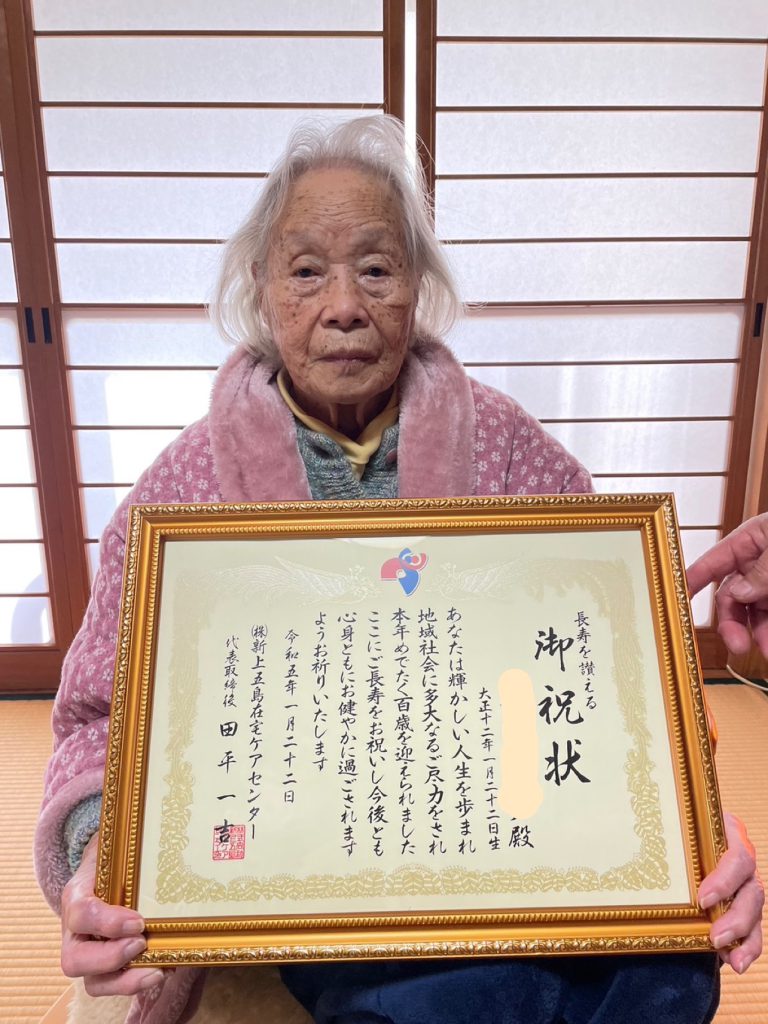 長寿を讃える
御祝状
殿
大正十二年一月二十二日生
あなたは輝かしい人生を歩まれ
地域社会に多大なるご尽力をされ
本年めでたく百歳を迎えられました
ここにご長寿をお祝いし今後とも
心身ともにお健やかに過ごされます
ようお祈りいたします
令和五年一月二十二日
㈱新上五島在宅ケアセンター
代表取締役 田平一吉